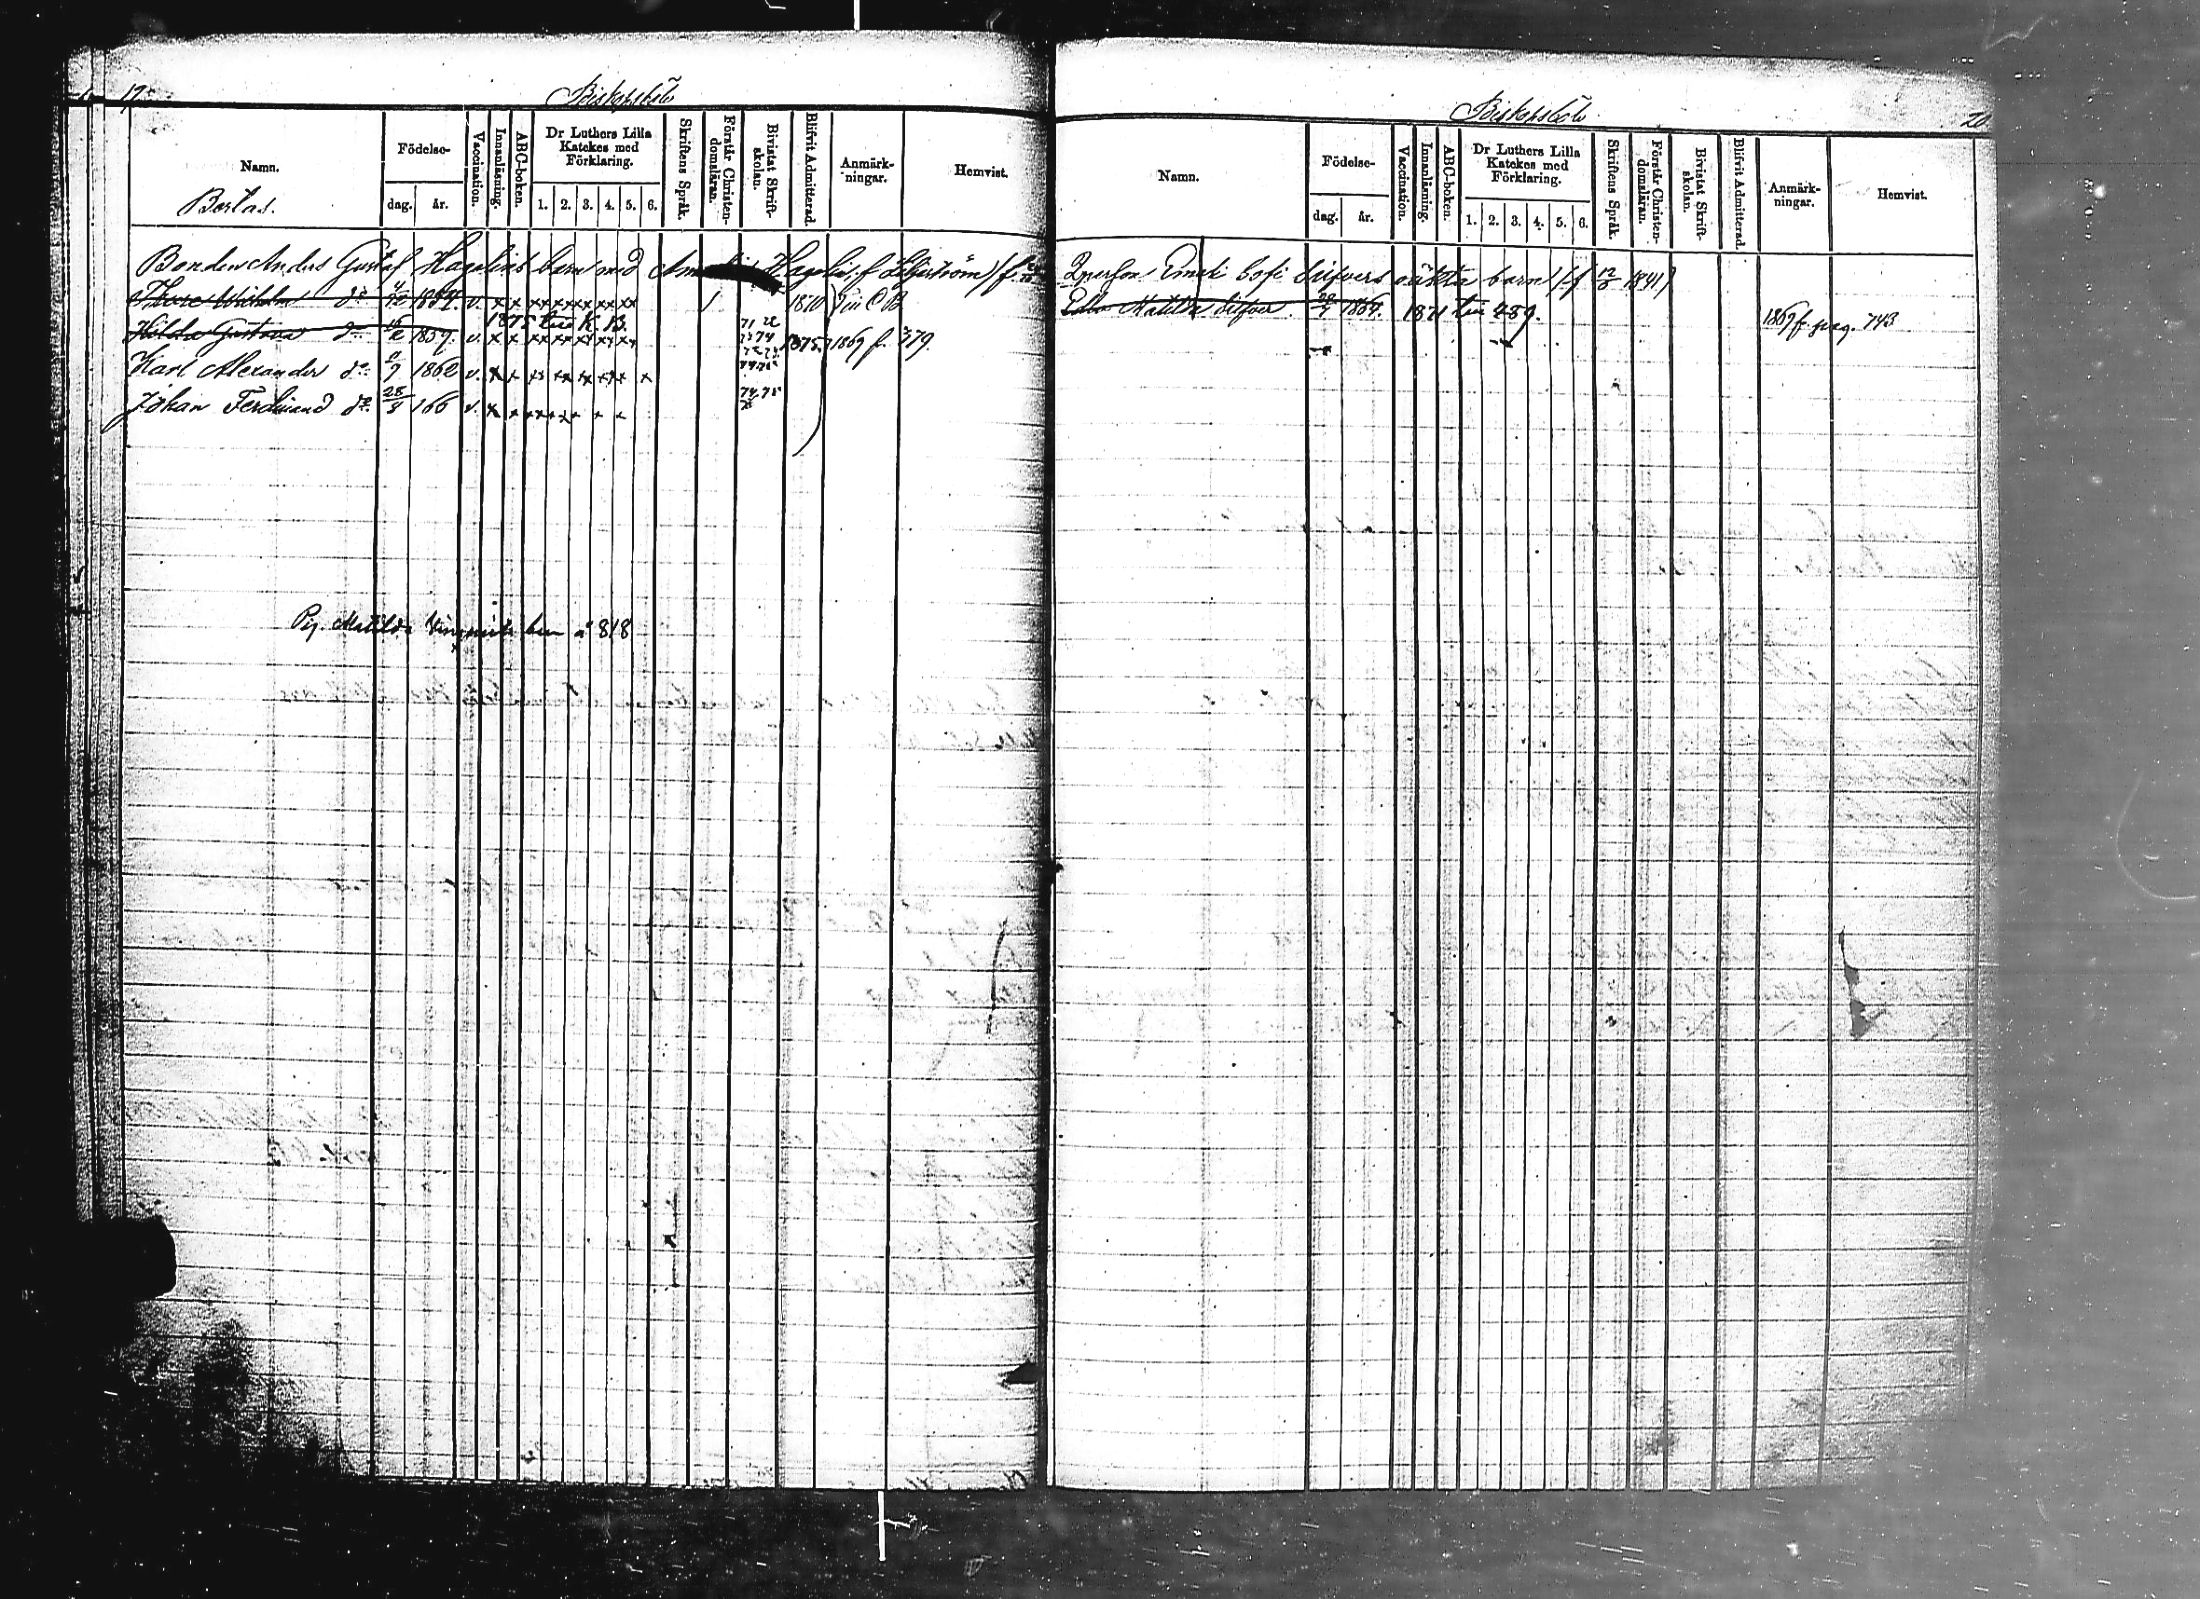 19.
Biskopsböle
Namn.
Födelse-
dag. år.
Vaccination.
Innanläsning.
ABC-boken.
Dr Luthers Lilla
Katekes med
Förklaring.
1. 2. 3. 4. 5. 6.
Skriftens Språk.
Förstår Christen-
domsläran.
Bivistat Skrift-
skolan.
Blifvit Admitterad.
Anmärk-
ningar.
Hemvist.
Bonden Anders Gustaf Hagelins barn med
Wilhelm do 4/12 v. x x xx xx xx xx xx 1870
1875 till K. B. 71 72
Hilda Gustava do 16/2 1859. v. x x xx xx xx xx xx 73 74 1875. 1869 f. 379.
Karl Alexander do 9/7 1862 v. x x xx xx xx xx x 74 75
Johan Ferdinand do 28/4 166 v. x x 74, 75
Pig. Matilda barn å 818
Biskopsböle
20.
Namn.
Födelse-
dag. år.
Vaccination.
Innanläsning.
ABC-boken.
Dr Luthers Lilla
Katekes med
Förklaring.
1. 2. 3. 4. 5. 6.
Skriftens Språk.
Förstår Christen-
domsläran.
Bivistat Skrift-
skolan.
Blifvit Admitterad.
Anmärk-
ningar.
Hemvist.
Qperson Sofi Silfvers oäkta barn (f 12/8 1841)
Matilda Silfver 1864. 1871 till 289. 1869 f. pag. 743